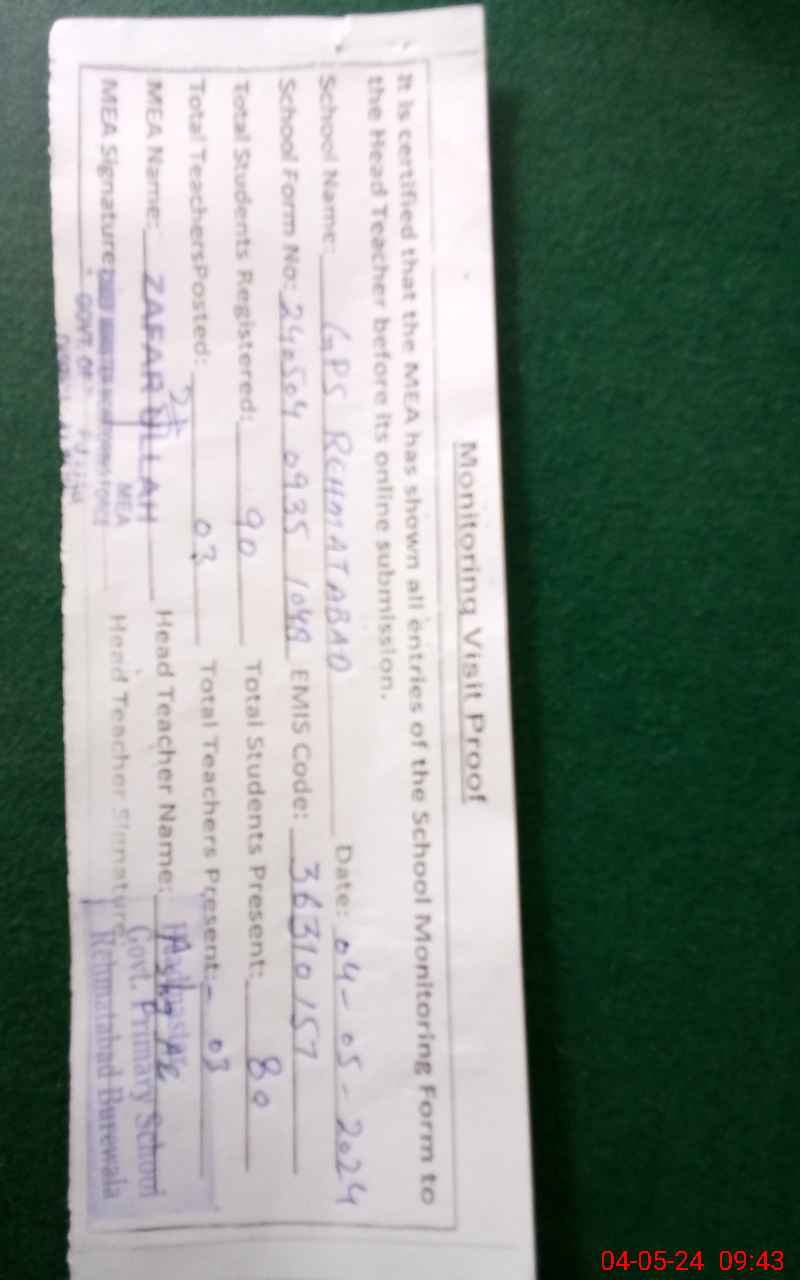 Monitoring Visit Proof
It is certified that the MEA has shown all entries of the School Monitoring Form to
the Head Teacher before its online submission.
School Name: GPS REHMATABAD Date: 04-05-2024
School Form No: 240504 0935 EMIS Code: 36310157
Total Students Registered: 90 Total Students Present: 80
Total TeachersPosted: 03 Total Teachers Present: 03
MEA Name: ZAFAR ULLAH Head Teacher Name:
MEA Signature: MEA Head Teacher Signature
GOVT. OF
Headmaster
Govt. Primary School
Rehmatabad Burewala
04-05-24 09:43